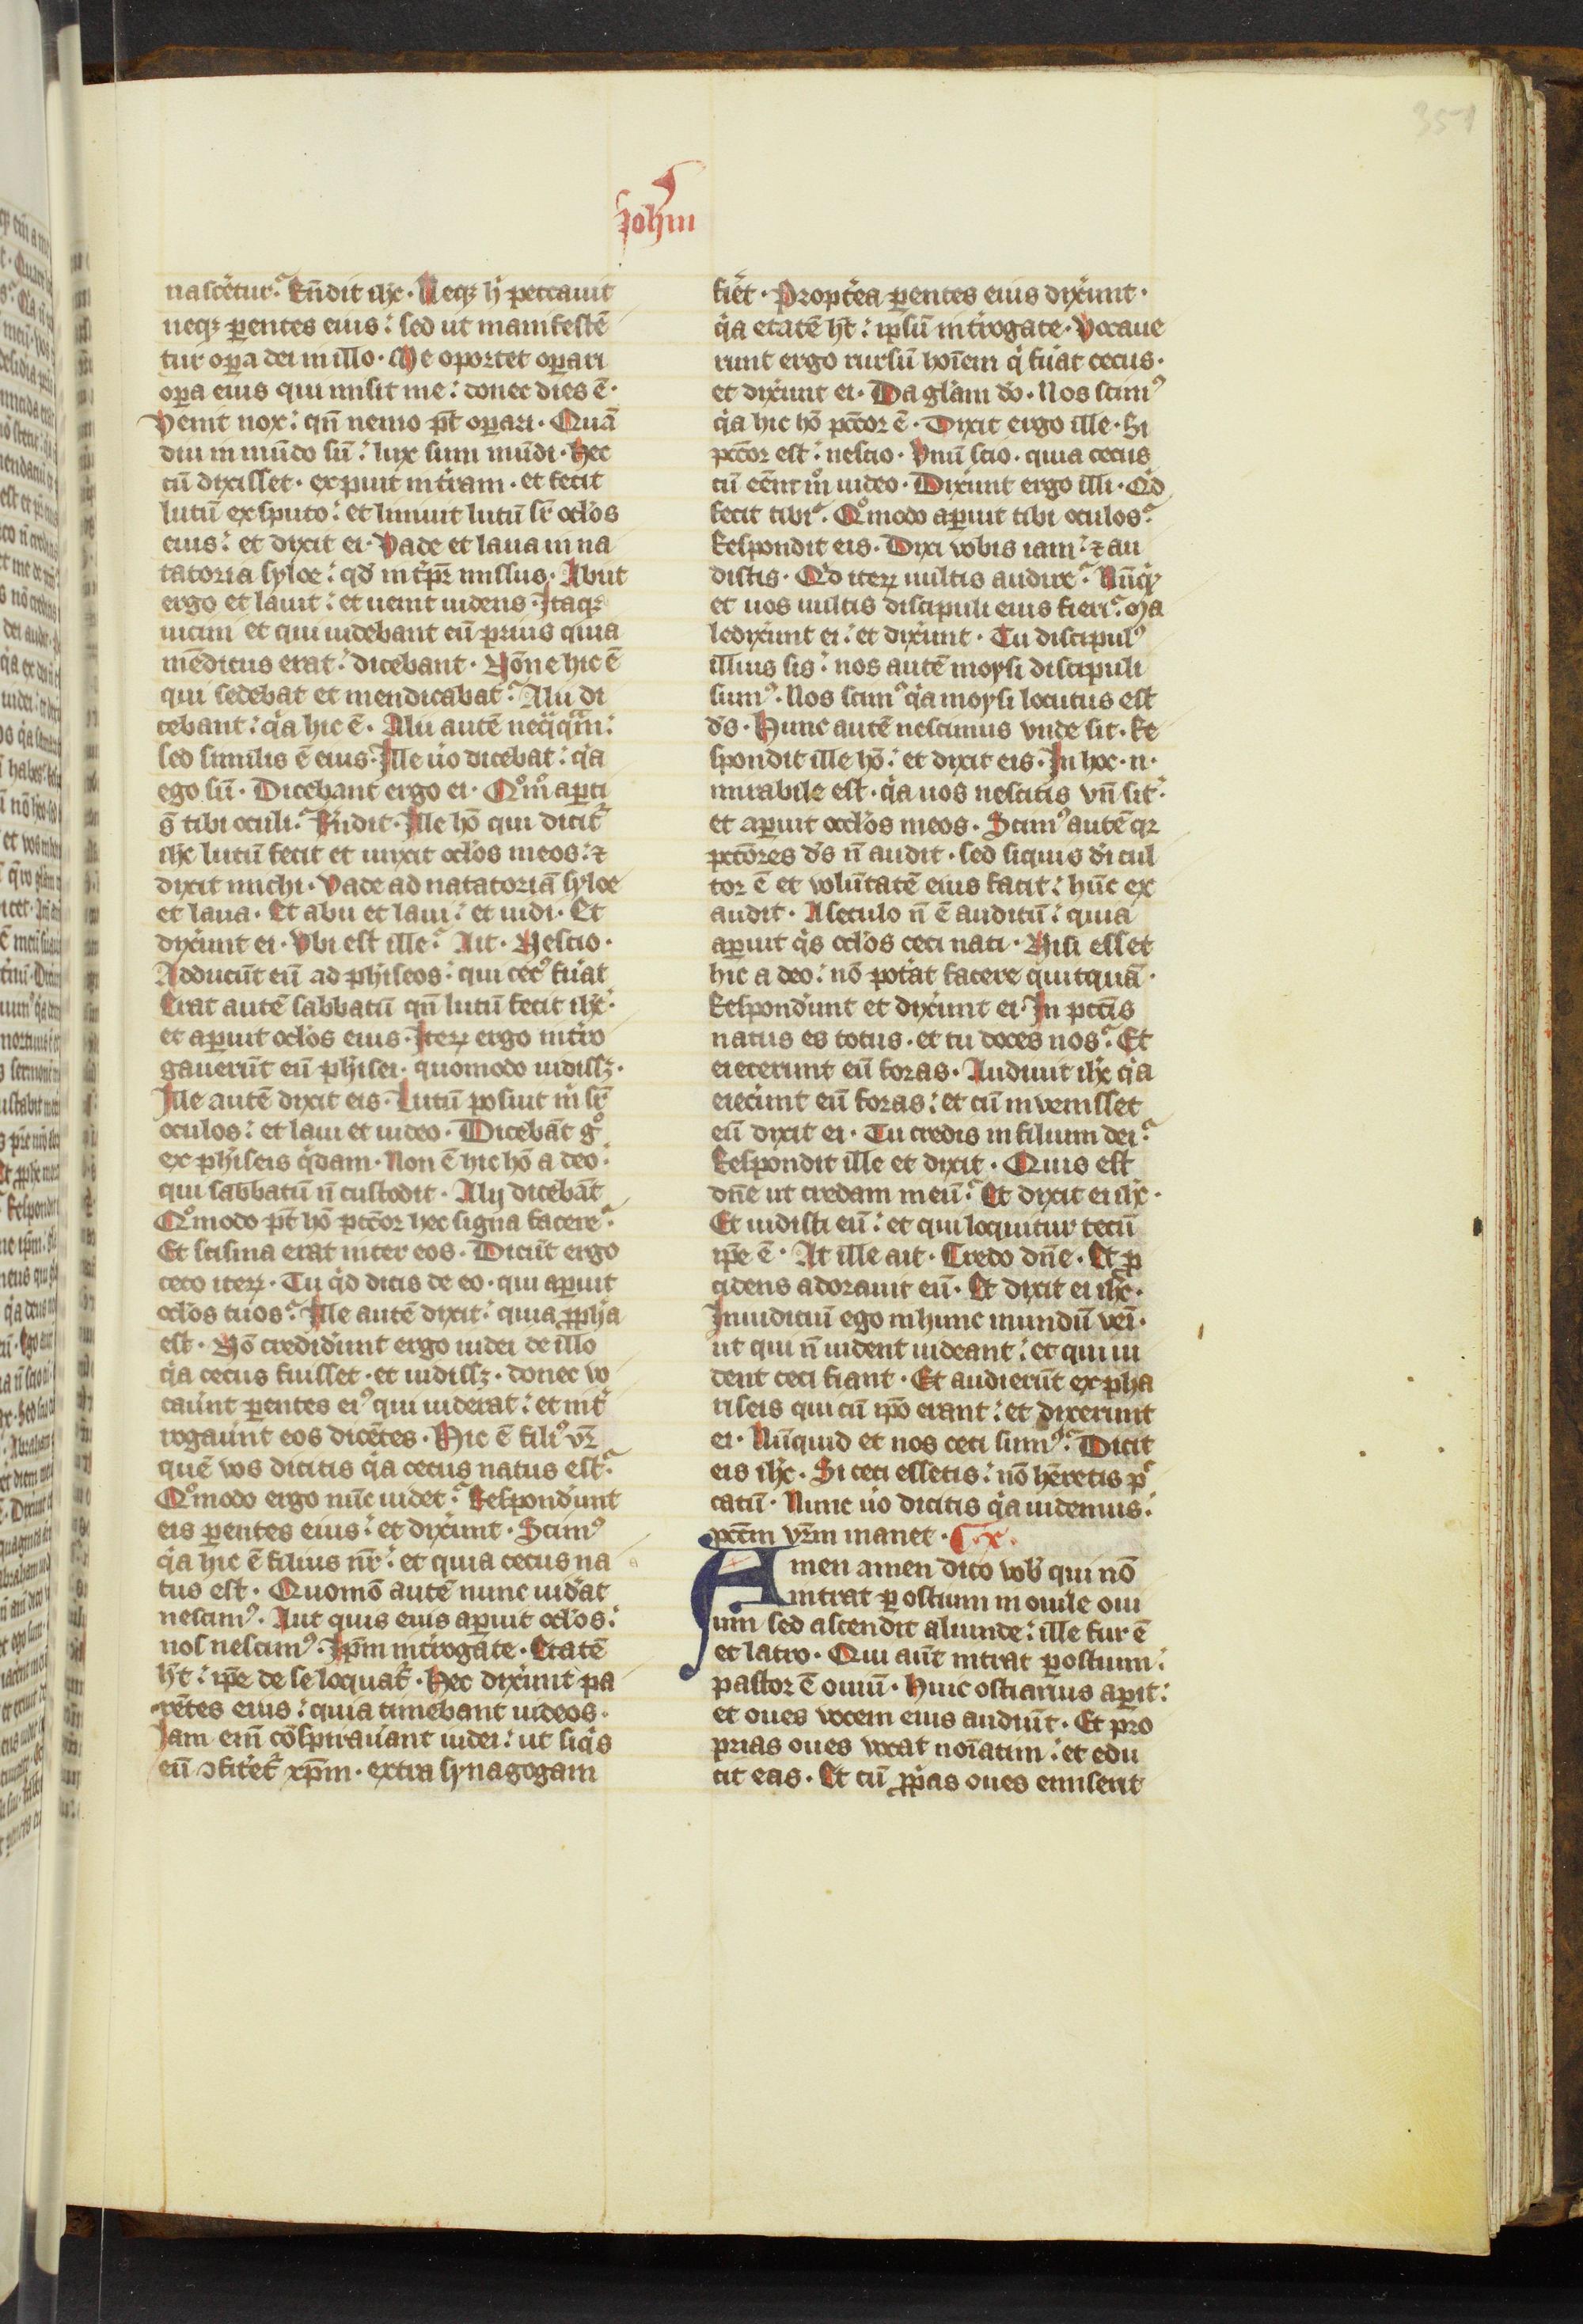 351
Johannem
nascetur. Rn̄dit ihc̄. Neqꝫ h' peccauit
neqꝫ ꝑentes eius: sed ut manifestē
tur oꝑa dei in illo. Me oportet oꝑari
oꝑa eius qui misit me: donec dies ē.
Venit nox: qn̄ nemo pt̄ oꝑari. Quā
diu in mūdo sū: lux sum mūdi. Hec
cū dixisset. expuit in t̾ram. et fecit
lutū ex sputo: et liniuit lutū sr̄ oc̄los
eius: et dixit ei. Vade et laua in na
tatoria syloe: qd̄ int̾p̄r missus. Abiit
ergo et lauit: et uenit uidens. Itaqꝫ
uicini et qui uidebant eū prius quia
mēdicus erat: dicebant. Nōne hic ē
qui sedebat et mendicabat. Alii di
cebant: qͥa hic ē. Alii autē neqͣqͣm:
sed similis ē eius. Ille uͦo dicebat: qͥa
ego sū. Dicebant ergo ei. Qͦm̊ aꝑti
s̄ tibi oculi. Rn̄dit. Ille hō qui dicit᷑
ihc̄ lutū fecit et unxit oc̄los meos: ⁊
dixit michi. Vade ad natatoriā syloe
et laua. Et abii et laui: et uidi. Et
dixe̾unt ei. Vbi est ille. Ait. Nescio.
Adducūt eū ad ph̾iseos: qui cecꝰ fu̾at
Erat autē sabbatū qn̄ lutū fecit ihc̄:
et aꝑuit oc̄los eius. Iteꝝ ergo int̾ro
gauerūt eū ph̾isei. quomodo uidissꝫ.
Ille autē dixit eis. Lutū posuit m̊ sr̄
oculos: et laui et uideo. Dicebāt gͦ
ex ph̾iseis qͥdam. Non ē hic hō a deo:
qui sabbatū n̄ custodit. Alij dicebāt
Qͦmodo pt̄ hō pctōr hec signa facere.
Et scisma erat inter eos. Dicūt ergo
ceco iteꝝ. Tu qͥd dicis de eo. qui aꝑuit
oc̄los tuos. Ille autē dixit: quia ꝓph̾a
est. Nō credide̾unt ergo iudei de illo
qͥa cecus fuisset. et uidissꝫ. donec vo
cau̾unt ꝑentes eiꝰ qui uiderat: et int̾
rogau̾unt eos dicētes. Hic ē filiꝰ vr̄
quē vos dicitis qͥa cecus natus est.
Qͦmodo ergo nūc uidet. Respond̾unt
eis ꝑentes eius: et dixe̾unt. Scimꝰ
qͥa hic ē filius nr̄: et quia cecus na
tus est. Quomō autē nunc uid̾at
nescimꝰ. Aut quis eius aꝑuit oc̄los:
nos nescimꝰ. Ip̄m int̾rogate. Etatē
h̄t: ip̄e de se loquat᷑. Hec dixe̾unt pa
rētes eius: quia timebant iudeos.
Iam em̄ cōspirau̾ant iudei: ut siqͥs
eū ꝯfitet᷑ xp̄m. extra synagogam
fiēt. Propt̾ea ꝑentes eius dixe̾unt.
qͥa etatē h̄t: ipsū int̾rogate. Vocaue
runt ergo rursū hoīem qͥ fu̾at cecus.
et dixe̾unt ei. Da glām dō. Nos scimꝰ
qͥa hic hō pctōr ē. Dixit ergo ille. Si
pctōr est: nescio. Vnū scio. quia cecus
cū eēm m̊ uideo. Dixe̾unt ergo illi. Qͥd
fecit tibi. Qͦmodo aꝑuit tibi oculos.
Respondit eis. Dixi vobis iam: ⁊ au
distis. Qͥd iteꝝ uultis audire. Nūqͥd
et uos uultis discipuli eius fieri. Ma
ledixe̾unt ei: et dixe̾unt. Tu discipulꝰ
illius sis: nos autē moysi discipuli
sumꝰ. Nos scimꝰ qͥa moysi locutus est
ds̄. Hunc autē nescimus vnde sit. Re
spondit ille hō: et dixit eis. In hoc .n.
mirabile est. qͥa uos nescitis vn̄ sit:
et aꝑuit oc̄los meos. Scimꝰ autē qꝛ
pctōres ds̄ n̄ audit. sed siquis dī cul
tor ē et volūtatē eius facit: hūc ex
audit. A seculo n̄ ē auditū: quia
aꝑuit qͥs oc̄los ceci nati. Nisi esset
hic a deo: nō pot̾at facere quitquā.
Respond̾unt et dixe̾unt ei. In pctīs
natus es totus. et tu doces nos. Et
eiecerunt eū foras. Audiuit ihc̄ qͥa
eiece̾unt eū foras: et cū invenisset
eū dixit ei. Tu credis in filium dei.
Respondit ille et dixit. Quis est
dn̄e ut credam in eū. Et dixit ei ihc̄.
Et uidisti eū: et qui loquitur tecū
ip̄e ē. At ille ait. Credo dn̄e. Et ꝓ
cidens adorauit eū. Et dixit ei ihc̄.
In iudiciū ego in hunc mundū veī.
ut qui n̄ uident uideant: et qui ui
dent ceci fiant. Et audierūt ex pha
riseis qui cū ip̄o erant: et dixerunt
ei. Nūquid et nos ceci sumꝰ. Dicit
eis ihc̄. Si ceci essetis: nō hēretis pͨ
catū. Nunc uͦo dicitis qͥa uidemus:
pctm̄ vr̄m manet. C. x.
Amen amen dico vob̾ qui nō
intrat ꝑ ostium in ouile oui
um sed ascendit aliunde: ille fur ē
et latro. Qui aūt intrat ꝑ ostium:
pastor ē ouiū. Huic ostiarius aꝑit:
et oues vocem eius audiūt. Et pro
prias oues vocat noīatim: et edu
cit eas. Et cū ꝓp̾as oues emiserit